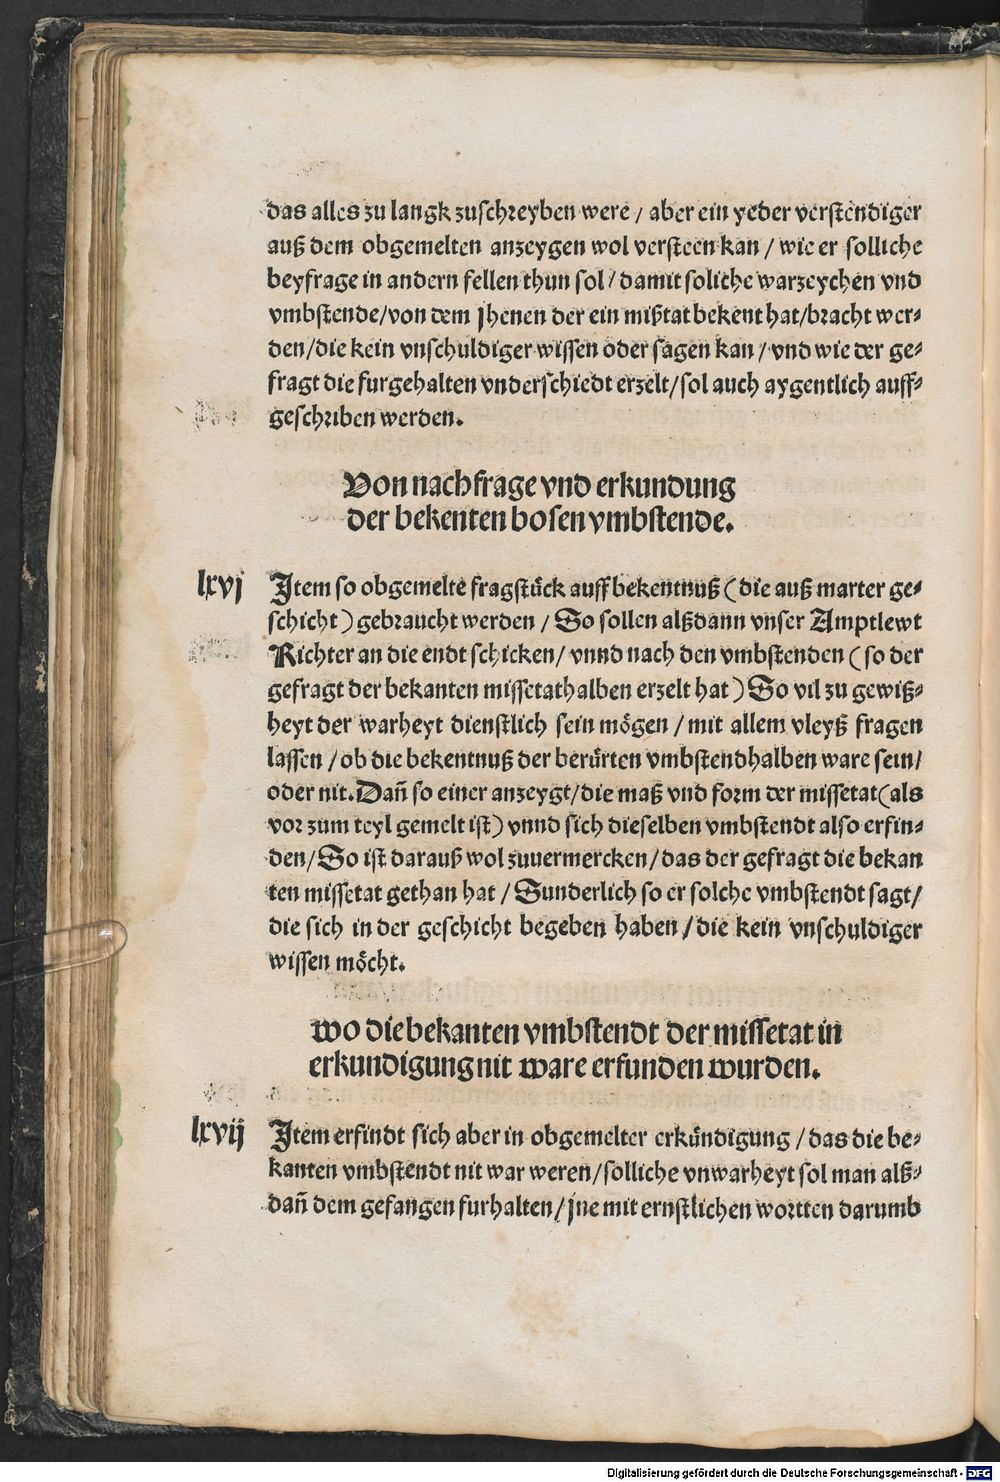 das alles zu langk zuschreyben were / aber ein yeder verstendiger
auß dem obgemelten anzeygen wol versteen kan / wie er solliche
beyfrage in andern fellen thun sol / damit soliche warzeychen vnd
vmbstende/von dem jhenen der ein mißtat bekent hat/bracht wer⸗
den/die kein vnschuldiger wissen oder sagen kan / vnd wie der ge⸗
fragt die furgehalten vnderschiedt erzelt/sol auch aygentlich auff⸗
geschriben werden.
Von nachfrage vnd erkundung
der bekenten bosen vmbstende.
lxvj Item so obgemelte fragstuͤck auff bekentnuß ( die auß marter ge⸗
schicht ) gebraucht werden / So sollen alßdann vnser Amptlewt
Richter an die endt schicken/ vnnd nach den vmbstenden ( so der
gefragt der bekanten missetathalben erzelt hat ) So vil zu gewiß⸗
heyt der warheyt dienstlich sein moͤgen / mit allem vleyß fragen
lassen / ob die bekentnuß der beruͤrten vmbstendhalben ware sein/
oder nit. Dañ so einer anzeygt/die maß vnd form der missetat(als
vor zum teyl gemelt ist) vnnd sich dieselben vmbstendt also erfin⸗
den/So ist darauß wol zuuermercken/das der gefragt die bekan
ten missetat gethan hat / Sunderlich so er solche vmbstendt sagt/
die sich in der geschicht begeben haben / die kein vnschuldiger
wissen moͤcht.
wo die bekanten vmbstendt der missetat in
erkundigung nit ware erfunden wurden.
lxvij Item erfindt sich aber in obgemelter erkuͤndigung / das die be⸗
kanten vmbstendt nit war weren/solliche vnwarheyt sol man alß⸗
dañ dem gefangen furhalten/jne mit ernstlichen wortten darumb
Digitalisierung gefördert durch die Deutsche Forschungsgemeinschaft - DFG